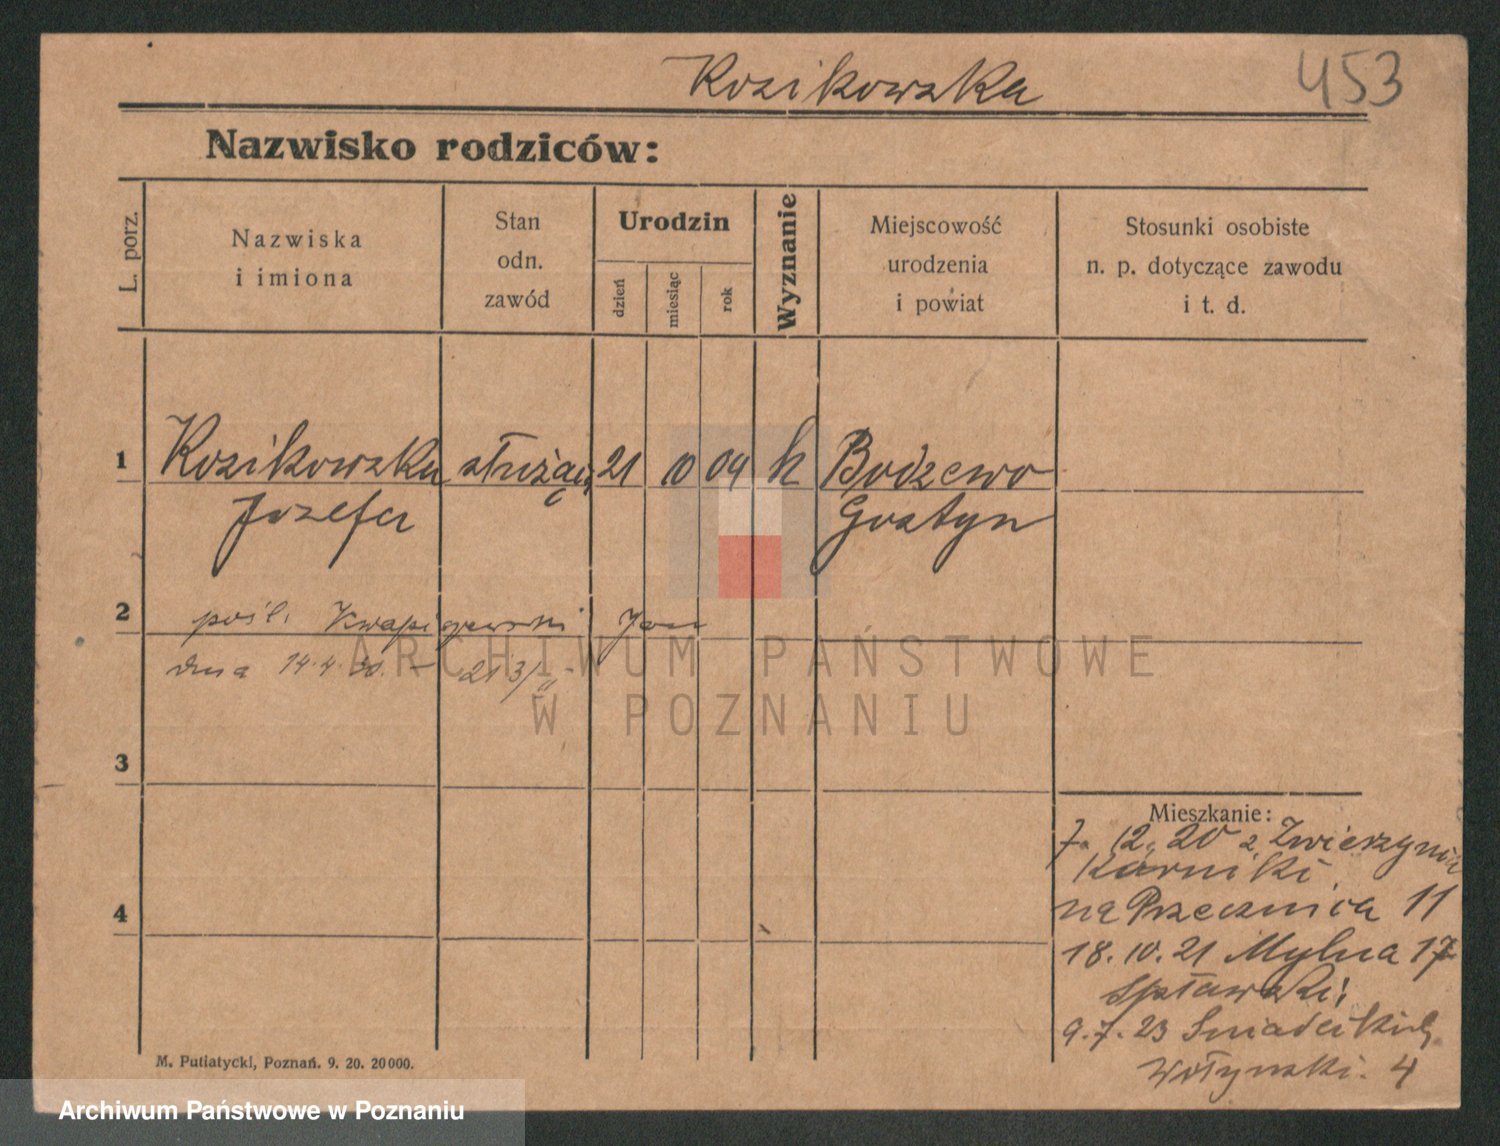 Kozikowska 453
Nazwisko rodziców:
L. porz.
Nazwiska
i imiona
Stan
odn.
zawód
Urodzin
dzień
miesiąc
rok
Wyznanie
Miejscowość
urodzenia
i powiat
Stosunki osobiste
n. p. dotyczące zawodu
i t. d.
1 Kozikowska służąca 21 10 04 k Bodzewo
Józefa Gostyn
2 pośl. Kwapiszewski Jan
dna 14.4.30. - 213/II -
ARCHIWUM PAŃSTWOWE
W POZNANIU
3
Mieszkanie:
7. 12. 20 z Zwierzyniec
Karniki
4 na Przecznica 11
18. 10. 21 Mylna 17
Spławski
9. 7. 23 Sniadeckich
Wołynski. 4
M. Putiatycki, Poznań. 9. 20. 20000.
Archiwum Państwowe w Poznaniu